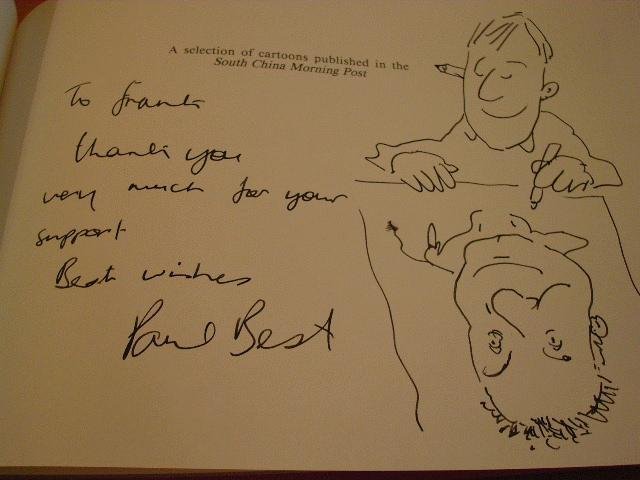 A selection of cartoons published in the
South China Morning Post
To Frank
thank you
very much for your
support
Best wishes
Paul Best